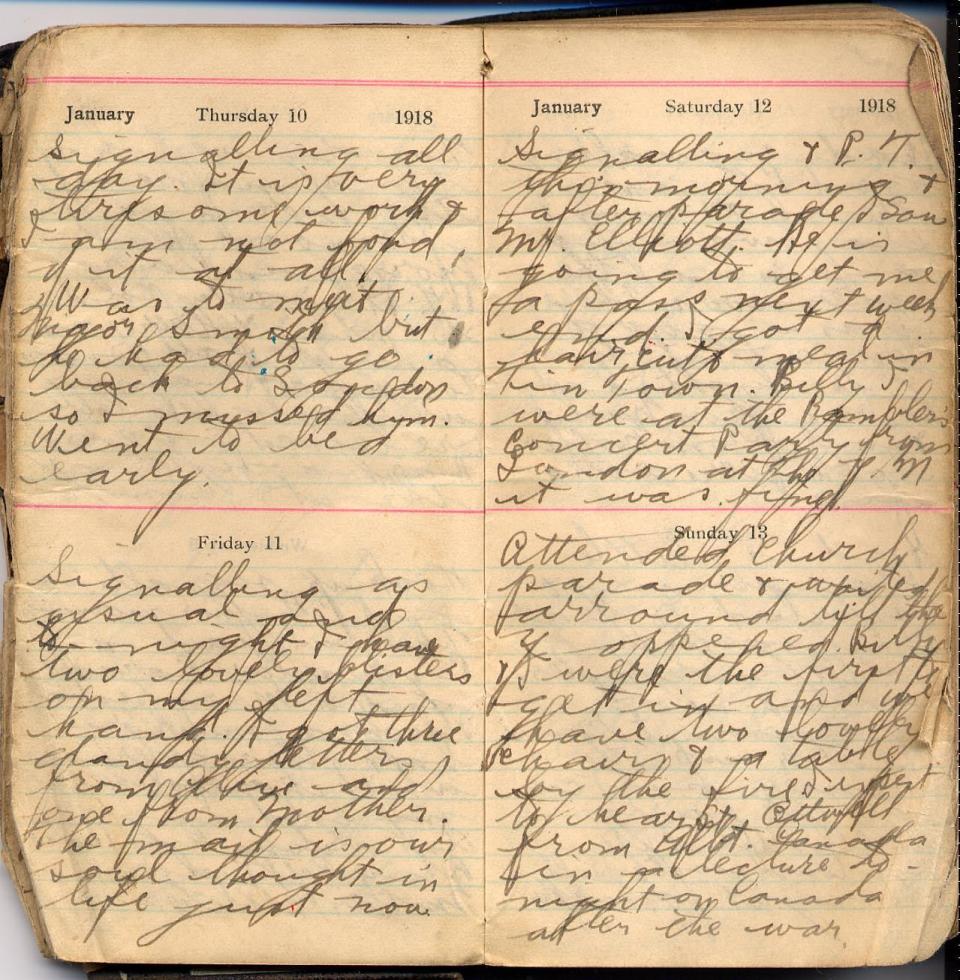 January Thursday 10 1918
signalling all
day. It is very
tiresome work &
I am not fond
of it at all.
Was to meet
but
he had to go
back to London
so I missed him.
Went to bed
early.
Friday 11
Signalling as
usual and
to-night I have
two lovely blisters
on my left
hand. I got three
dandy letters
from Olive and
one from Mother.
The mail is our
sole thought in
life just now.
January Saturday 12 1918
Signalling & P. T.
this morning &
after parade I saw
Mr. Elliott. He is
going to get me
a pass next week
end. I got a
haircut & meal in
in Town. Billy & I
were at the Rambler's
Concert Party from
London at the Y. M
it was fine.
Sunday 13
Attended Church
parade & waited
arround till the
Y oppened. Billy
& I were the first to
get in and we
have two lovely
chairs & a table
by the fire. I went
to hear
from Alt. Canada
in a lecture to-
night on Canada
after the war.